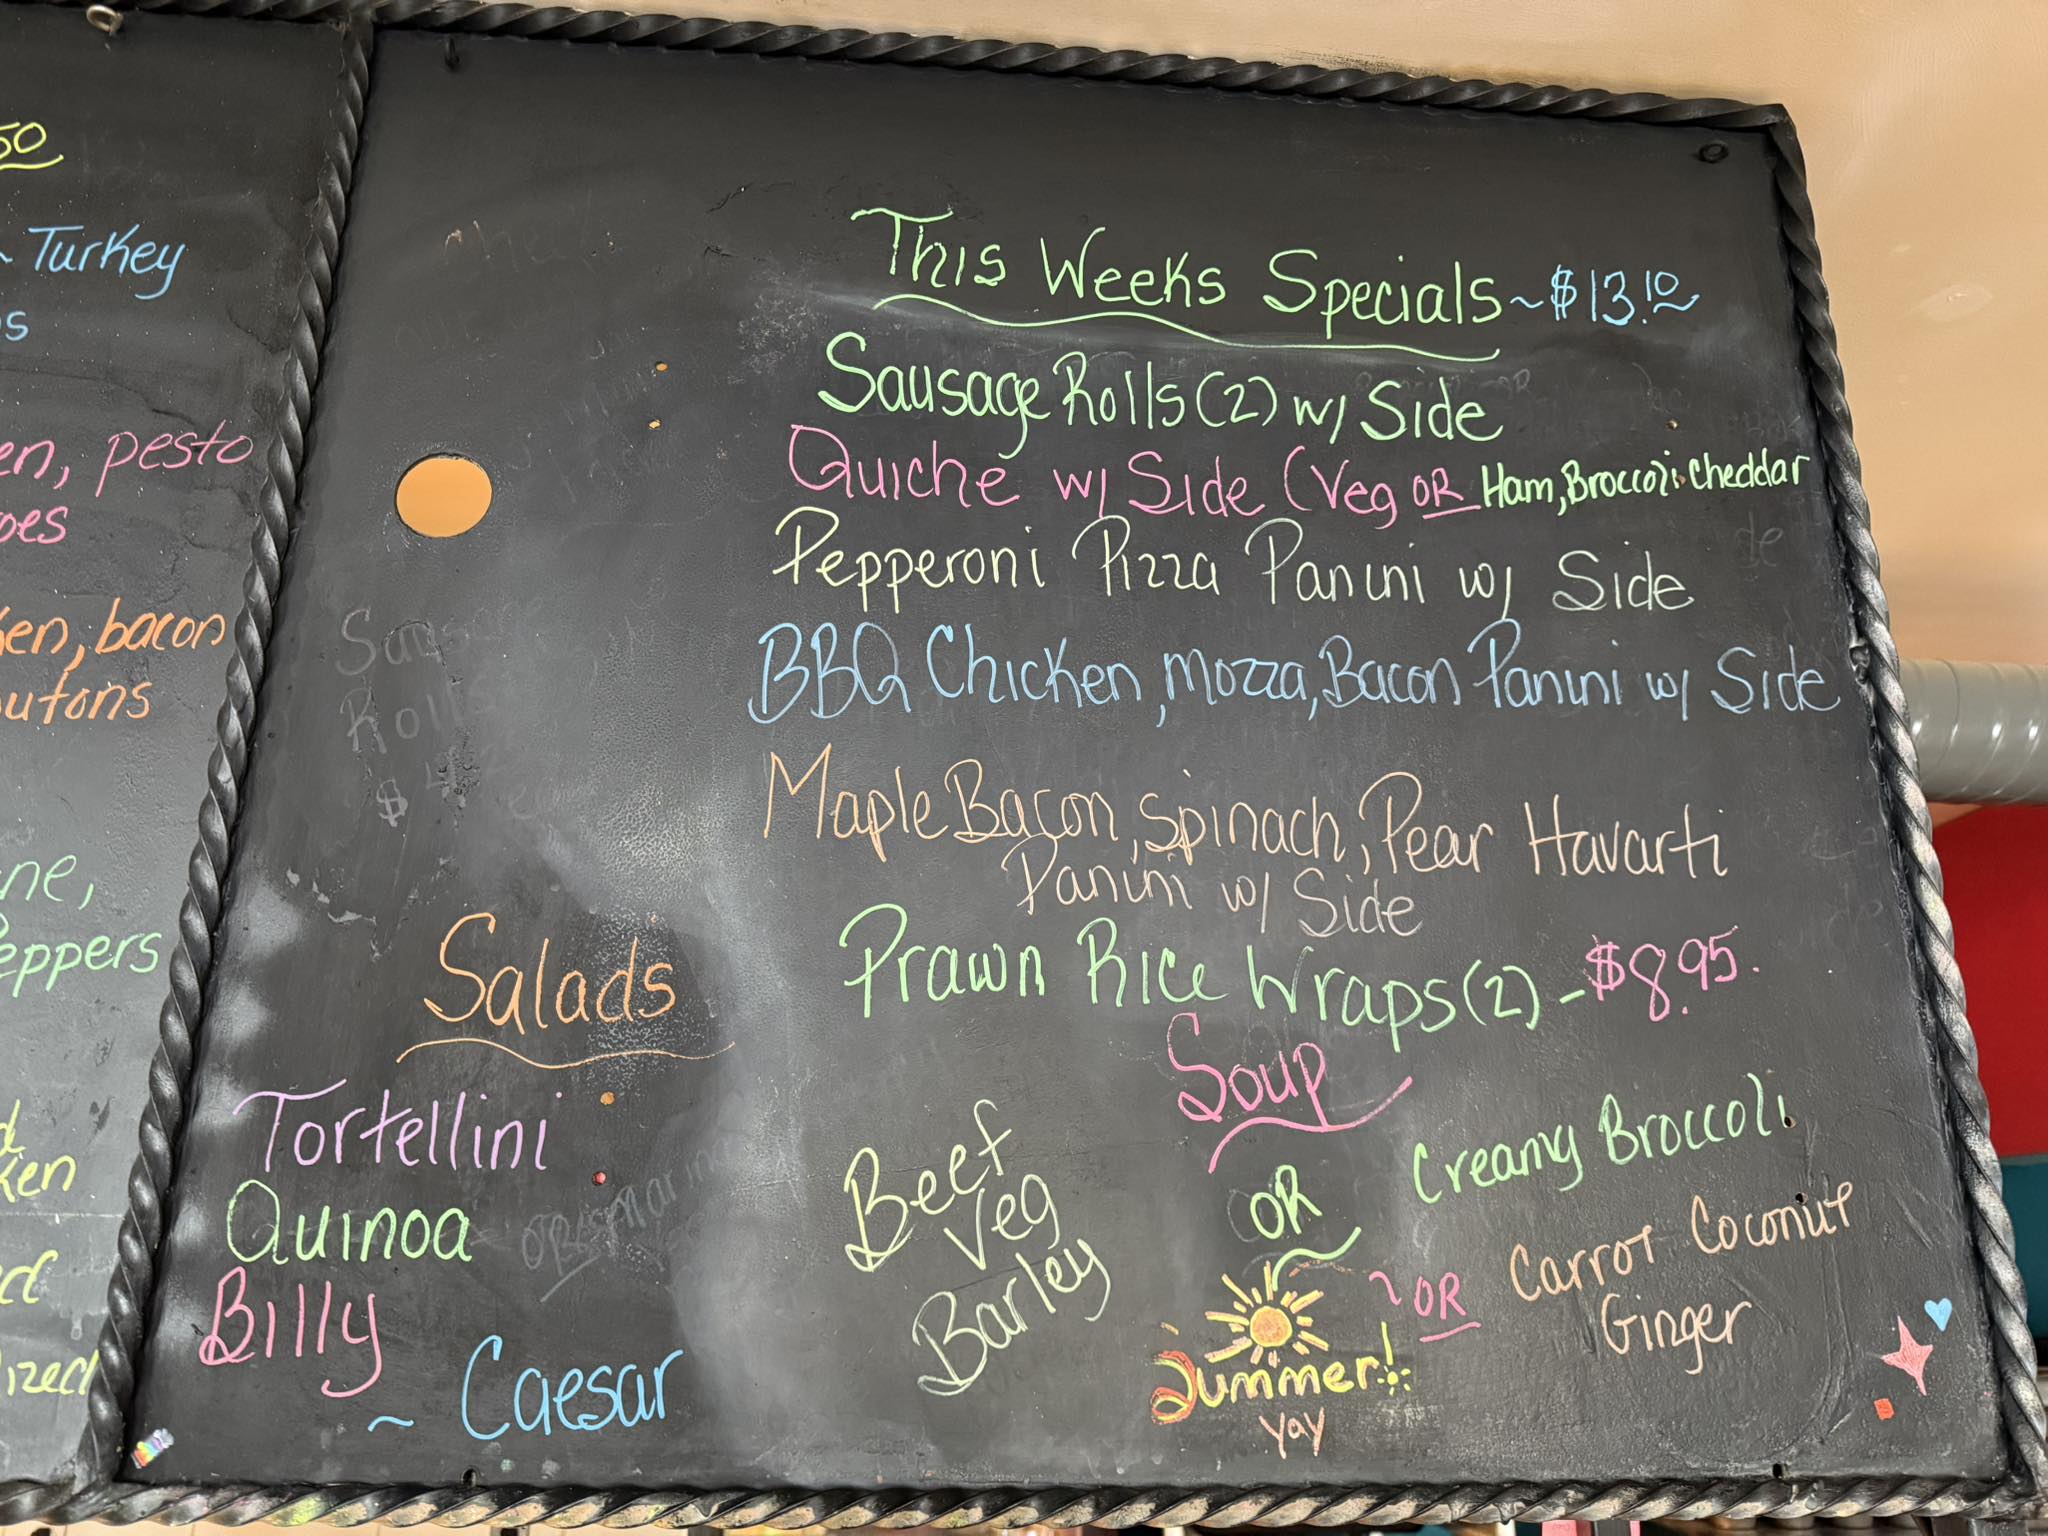 50
~ Turkey
pesto
bacon
This Weeks Specials ~ $13.10 ~
Sausage Rolls (2) w/ Side
Quiche w/ Side (Veg OR Ham, Broccoli Cheddar
Pepperoni Pizza Panini w/ Side
BBQ Chicken, Mozza, Bacon Panini w/ Side
Maple Bacon, Spinach, Pear Havarti
Panini w/ Side
Prawn Rice Wraps (2) - $8.95.
Salads
Tortellini
Quinoa
Billy
~ Caesar
Soup
Beef
Veg
Barley
OR
Creamy Broccoli
OR
Carrot Coconut
Ginger
Summer!
Yay
Sausage
Rolls